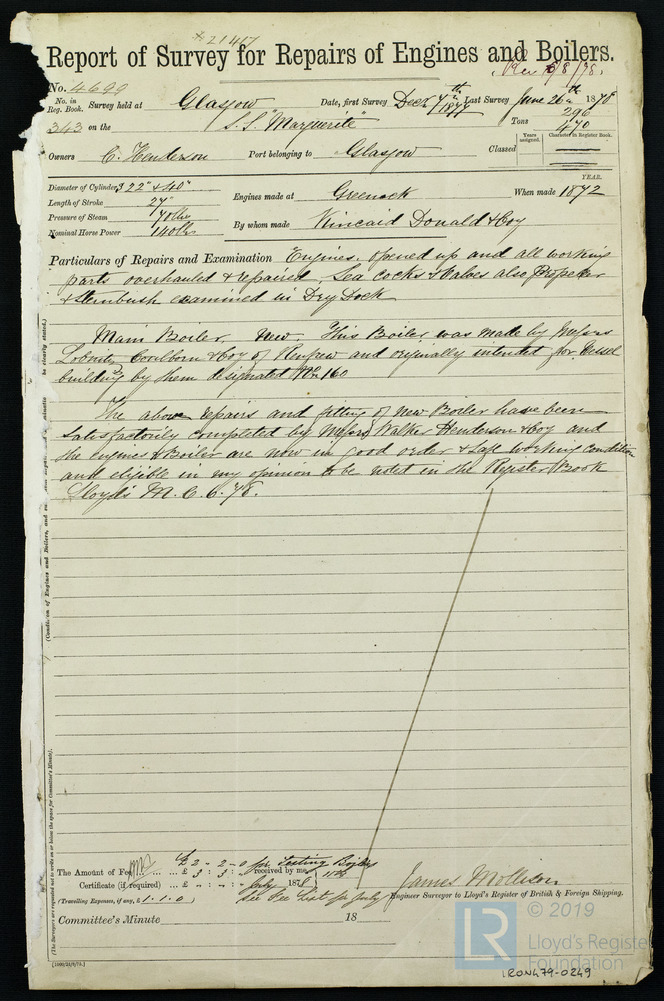 No 21417
Report of Survey for Repairs of Engines and Boilers.
Rec 6/8/78.
No. 4699
No. in Reg. Book. Survey held at Glasgow Date, first Survey Decr 7th 1877 Last Survey June 26th 1878
343 on the S.S. "Marguerite" Tons 296 470
Years assigned. Character in Register Book.
Owners C. Henderson Port belonging to Glasgow Classed
YEAR.
Diameter of Cylinders 22" & 40" Engines made at Greenock When made 1872
Length of Stroke 27"
Pressure of Steam 70 lbs By whom made Kincaid Donald & Coy
Nominal Horse Power 140
Particulars of Repairs and Examination Engines, opened up and all working
parts overhauled & repaired. Sea cocks & Valves also Propeller
& Sternbush examined in Dry Dock
Main Boiler, New. This Boiler was made by Messrs
Lobnitz Coulborn & Coy of Renfrew and originally intended for Vessel
building by them designated No 160
The above repairs and fitting of New Boiler have been
satisfactorily completed by Messrs Walker Henderson & Coy and
the Engines & Boiler are now in good order & safe working condition
and eligible in my opinion to be noted in the Register Book
Lloyds M. C. 6. 78.
(Condition of Engines and Boilers, and
be clearly stated.)
(The Surveyors are requested not to write on or below the space for Committee's Minute).
£ 2 " 2 " 0 for Testing Boiler
The Amount of Fee ... £ 3 : 3 : - received by me,
Certificate (if required) ... £ " : " : - July 1878
(Travelling Expenses, if any, £ 1 . 1 . 0 ) See Fee List for July
James Mollison
Engineer Surveyor to Lloyd's Register of British & Foreign Shipping.
Committee's Minute 18
© 2019
LR Lloyd's Register
Foundation
LRON479-0249